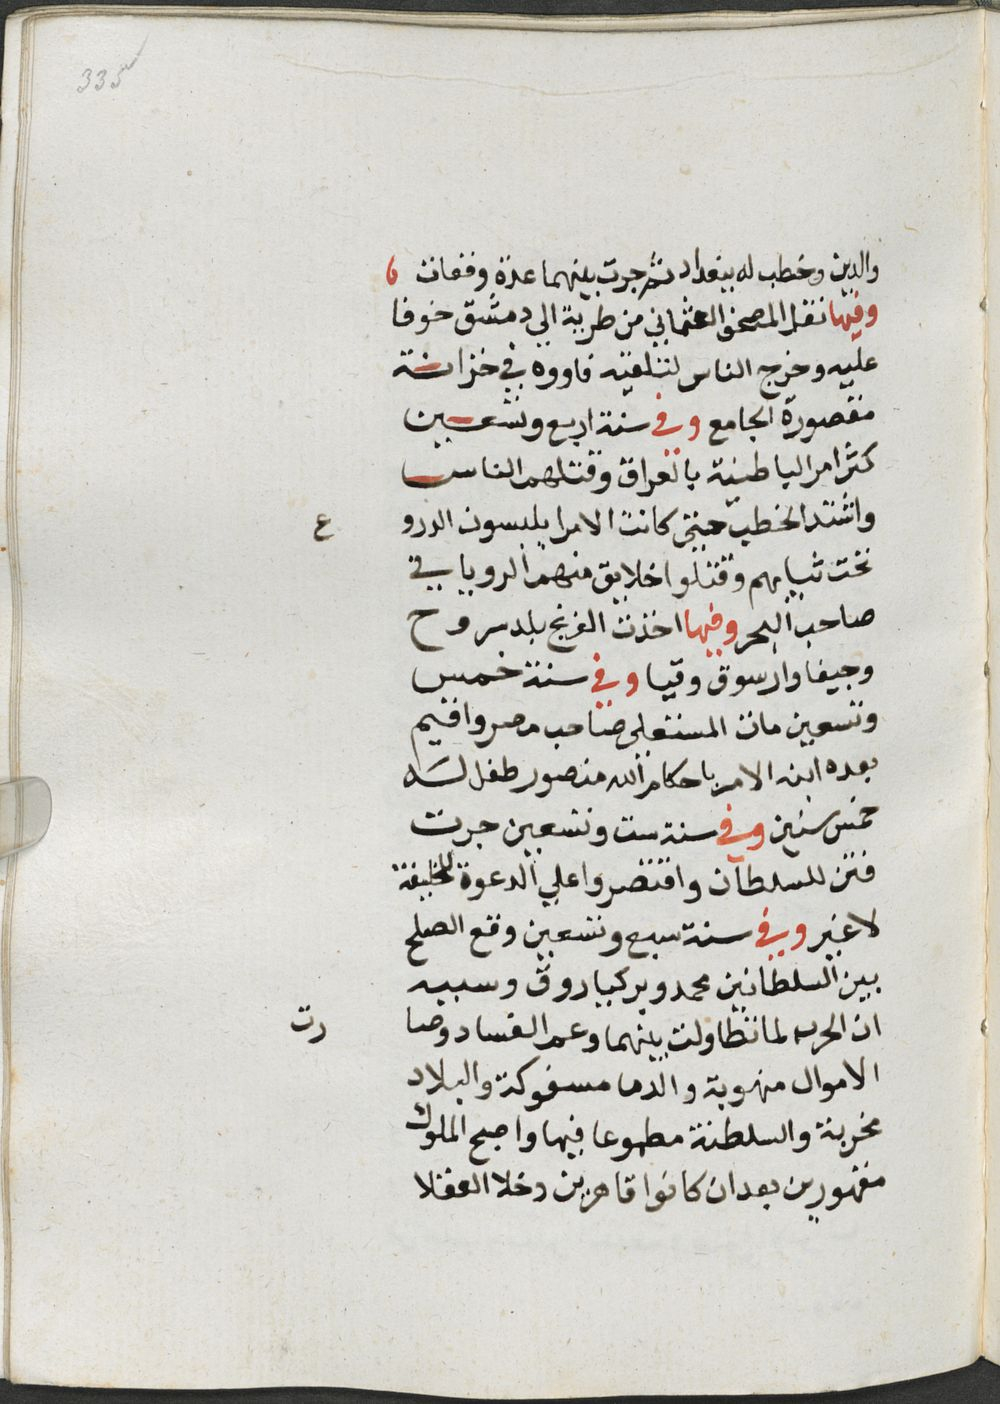 335
والدين وخطب له ببغداد ثم جرت بينهما عدة وقعات
وفيها نقل المصحف العثماني من طرية الي دمشق خوفا
عليه وخرج الناس لتلقيه فاووه في خزانة
مقصورة الجامع وفي سنة اربع وتسعين
كثر امر الباطنية بالعراق وقتلهم الناس
واشتد الخطب حتي كانت الامرا يلبسون الدرو ع
تحت ثيابهم وقتلوا خلايق منهم الرويا في
صاحب البحر وفيها اخذت الفرنج بلد سروح
وحيفا وارسوق وقيسا وفي سنة خمس
وتسعين مات المستعلي صاحب مصر واقيم
بعده ابنه الامر باحكام الله منصور طفل له
خمس سنين وفي سنة ست وتسعين جرت
فتن للسلطان واقتصروا علي الدعوة للخليفة
لا غير وفي سنة سبع وتسعين وقع الصلح
بين السلطانين محمد وبركياروق وسببه
ان الحرب لما تطاولت بينهما وعم الفساد وصا رت
الاموال منهوبة والدما مسفوكة والبلاد
مخربة والسلطنة مطموعا فيها واصبح الملوك
مقهورين بعد ان كانوا قاهرين دخلا العقلا